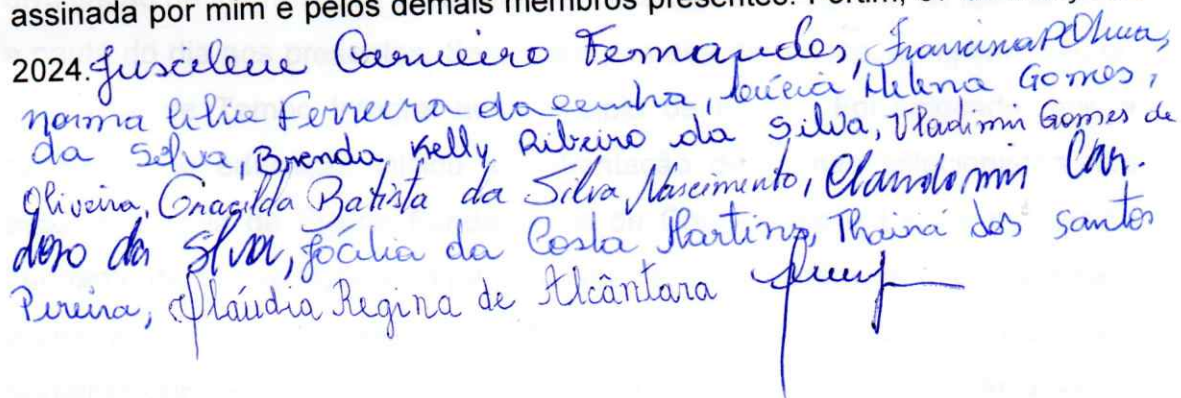 assinada por mim e pelos demais membros presentes. Portim,
2024. Juscilene Carneiro Fernandes, Francisca P Oliveira,
norma lilia Ferreira da cunha, Lúcia Helena Gomes,
da Silva, Brenda Kelly Ribeiro da Silva, Vladimir Gomes de
Oliveira, Gnacilda Batista da Silva Nascimento, Claudomir Car.
doso da Silva, Jocília da Costa Martins, Thainá dos santos
Pereira, Cláudia Regina de Alcântara